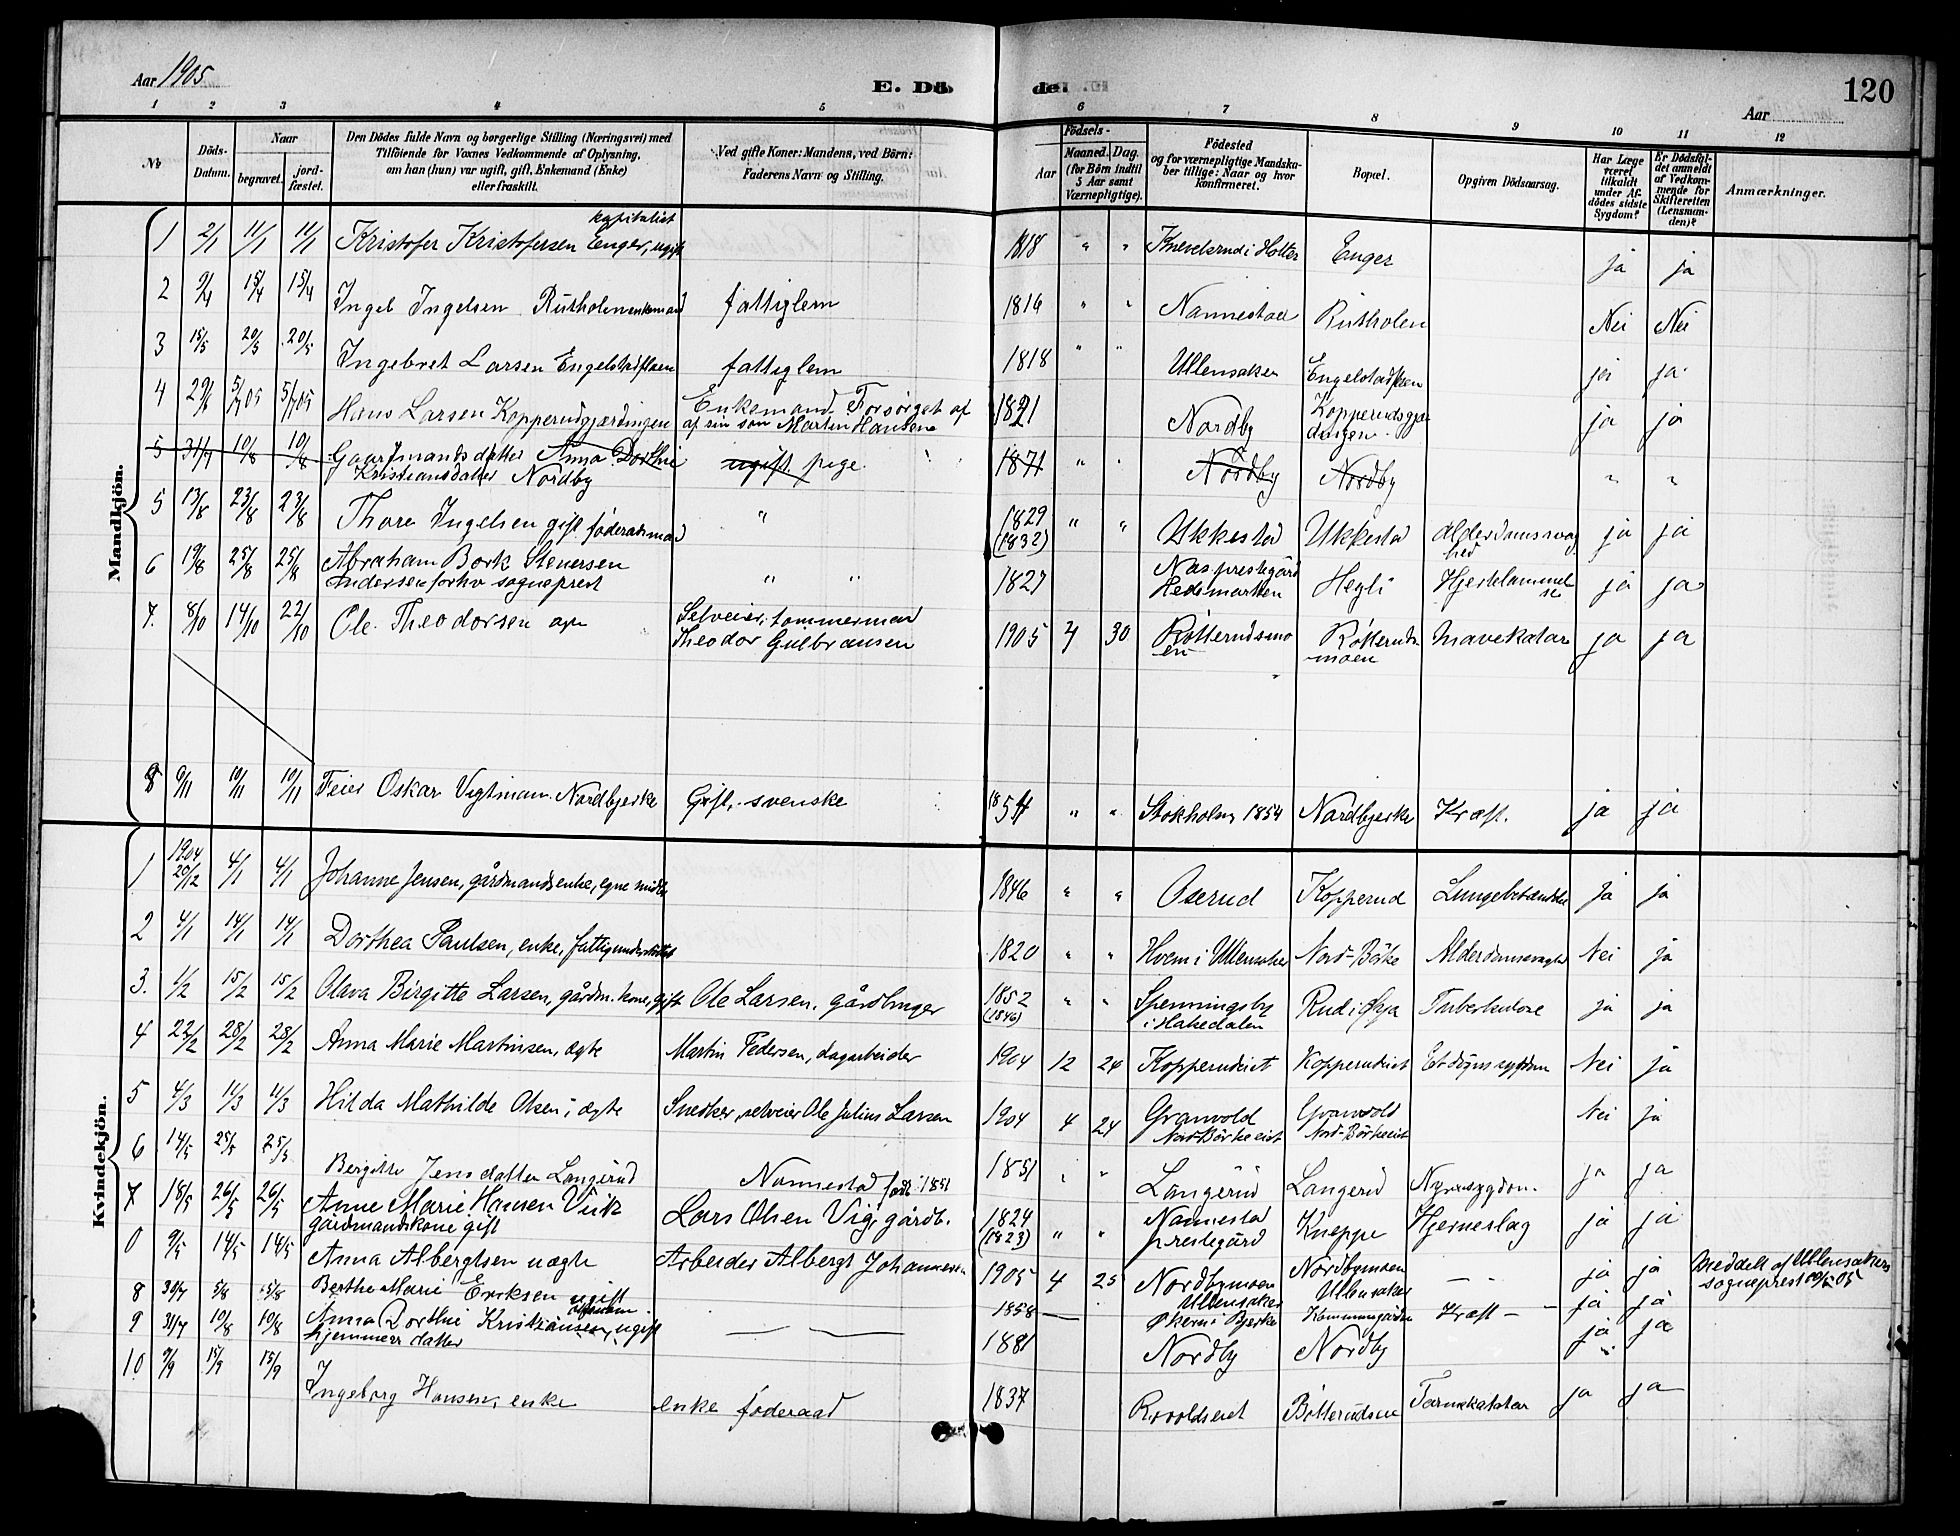 Aar 1905
E. Dö
de
120
Aar
1 2 3 4 5 6 7 8 9 10 11 12
No
Döds-Datum.
Naar
begravet.
jord-fæstet.
Den Dödes fulde Navn og borgerlige Stilling (Næringsvei) med
Tilföiende for Voxnes Vedkommende af Oplysning,
om han (hun) var ugift, gift, Enkemand (Enke)
eller fraskilt.
Ved gifte Koner: Mandens, ved Börn:
Faderens Navn og Stilling.
Födsels-
Aar
Maaned. Dag.
(for Börn indtil
5 Aar samt
Værnepligtige).
Födested
og for værnepligtige Mandska-
ber tillige: Naar og hvor
konfirmeret.
Bopæl.
Opgiven Dödsaarsag.
Har Læge
været
tilkaldt
under Af-
dödes sidste
Sygdom?
Er Dödsfal-
det anmeldt
af Vedkom-
mende for
Skifteretten
(Lensman-
den)?
Anmærkninger.
Mandkjön.
kapitalist
1 2/1 11/1 11/1 Kristofer Kristofersen Enger, ugift 1818 " " Knevelsrud i Holter Enger ja ja
2 9/4 15/4 15/4 Ingel Ingelsen Rustholen enkemand fattiglem 1816 " " Nannestad Rustholen Nei Nei
3 15/5 20/5 20/5 Ingebret Larsen Engelstadfloen fattiglem 1818 " " Ullensaker Engelstadfloen ja ja
4 29/6 5/7 05 5/7 05 Hans Larsen Kopperudgjærdingen Enkemand. Forsørget af 1821 Nordby Kopperudsgjær ja ja
af sin son Martin Hansen dingen.
5 31/7 10/8 10/8 Gaardmandsdatter Anna Dorthe ugift pige 1871 " " Nordby Nordby " "
Kristiansdatter Nordby
5 13/8 23/8 23/8 Thore Ingelsen gift føderadsmand " 1829 " " Ukkestad Ukkestad Alderdomssvag ja ja
(1832) hed
6 19/8 25/8 25/8 Abraham Bork Stenersen Nas prestegård
Andersen forhv sogneprest " " 1827 Hedemarken Hegli Hjertelammel ja ja
se
7. 8/10 14/10 22/10 Ole Theodorsen Selveier, tommermand
Theodor Gulbransen 1905 7 30 Rotterudsmo Rotteruds Mavekatar ja ja
en moen
8 6/11 10/11 10/11 Feier Oskar Vigtman Nordbyeske Gift, svenske 1854 " " Stokholm 1854 Nordbyeske Kræft. ja ja
Kvindekjön.
1904
1 20/12 4/1 4/1 Johanne Jensen, gårdmandsenke, egne midler 1846 " " Aserud Kopperud Lungebetændelse ja ja
2 4/1 14/1 14/1 Dorthea Paulsen, enke, fattigunderstøttet 1820 " " Hvem i Ullensaker Nord-Börke Alderdomssvaghed Nei ja
3. 1/2 15/2 15/2 Olava Birgitte Larsen, gårdm. kone, gift Ole Larsen, gårdbruger 1852 " " Spenningsby Rud i Øvja Tuberkulose ja ja
(1846) i Hakedalen
4 22/2 28/2 28/2 Anna Marie Martinsen, ægte Martin Pedersen, dagarbeider 1904 12 24 Kopperudeiet Kopperudeiet Nei ja
5 4/3 11/3 11/3 Hilda Mathilde Olsen, ægte Snedker, selveier Ole Julius Larsen 1904 4 24 Granvold Granvold Nei ja
Nord-Börke eiet Nord-Börkeeiet
6 14/5 25/5 25/5 Bergitte Jensdatter Langerud Nannestad født 1851 1851 " " Langerud Langerud Nyresygdom. ja ja
7 18/5 26/5 26/5 Anne Marie Hansen Viik Lars Olsen Vig, gårdb. 1824 " " Nannestad Kneppe Hjerneslag ja ja
gårdmandskone gift (1823) prestegård
0 9/5 14/5 14/5 Anna Albergtsen uægte Arbeider Albergt Johannesen 1905 4 25 Nordbymoen Nordbymoen — — ja ja Meddelt af Ullensakers
Ullensaker Ullensaker sogneprest
8 30/7 5/8 5/8 Berthe Marie Eriksen ugift 1858 — Økern i Bjerke Kommunegården Kræft — — ja ja
9 31/7 10/8 10/8 Anna Dorthe Kristiansen, ugift — — — 1881 Nordby Nordby ja ja
hjemmeværende datter
10 9/9 15/9 15/9 Ingeborg Hansen, enke enke føderaad 1837 Bötterudsen Tarmkatarr ja ja